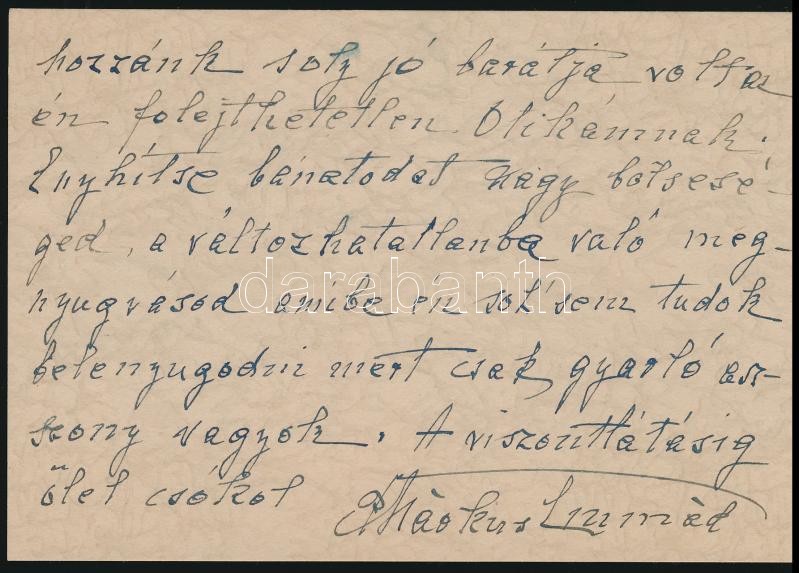 hozzánk soly jó barátja voltas
én folejthetetlen Olikámnak.
Enyhítse bánatodat nagy bölcsesé-
ged, a változhatatlanba való meg-
nyugvásod amibe én sol sem tudok
belenyugodni mert csak gyarló asz-
szony vagyok. A viszontlátásig
ölel csókol Márkus
darabanth